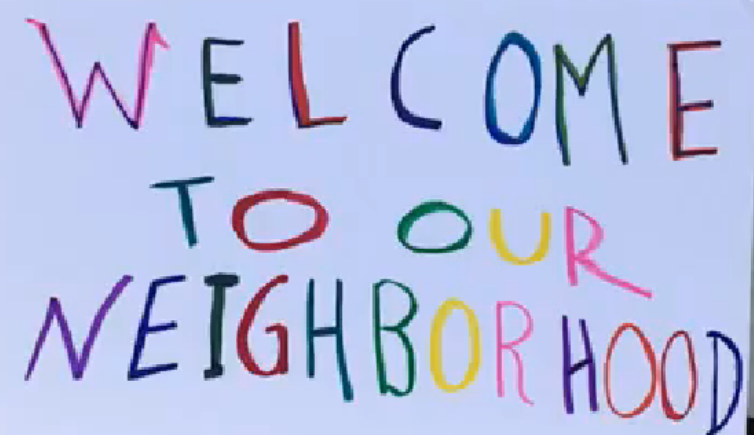 WELCOME
TO OUR
NEIGHBORHOOD